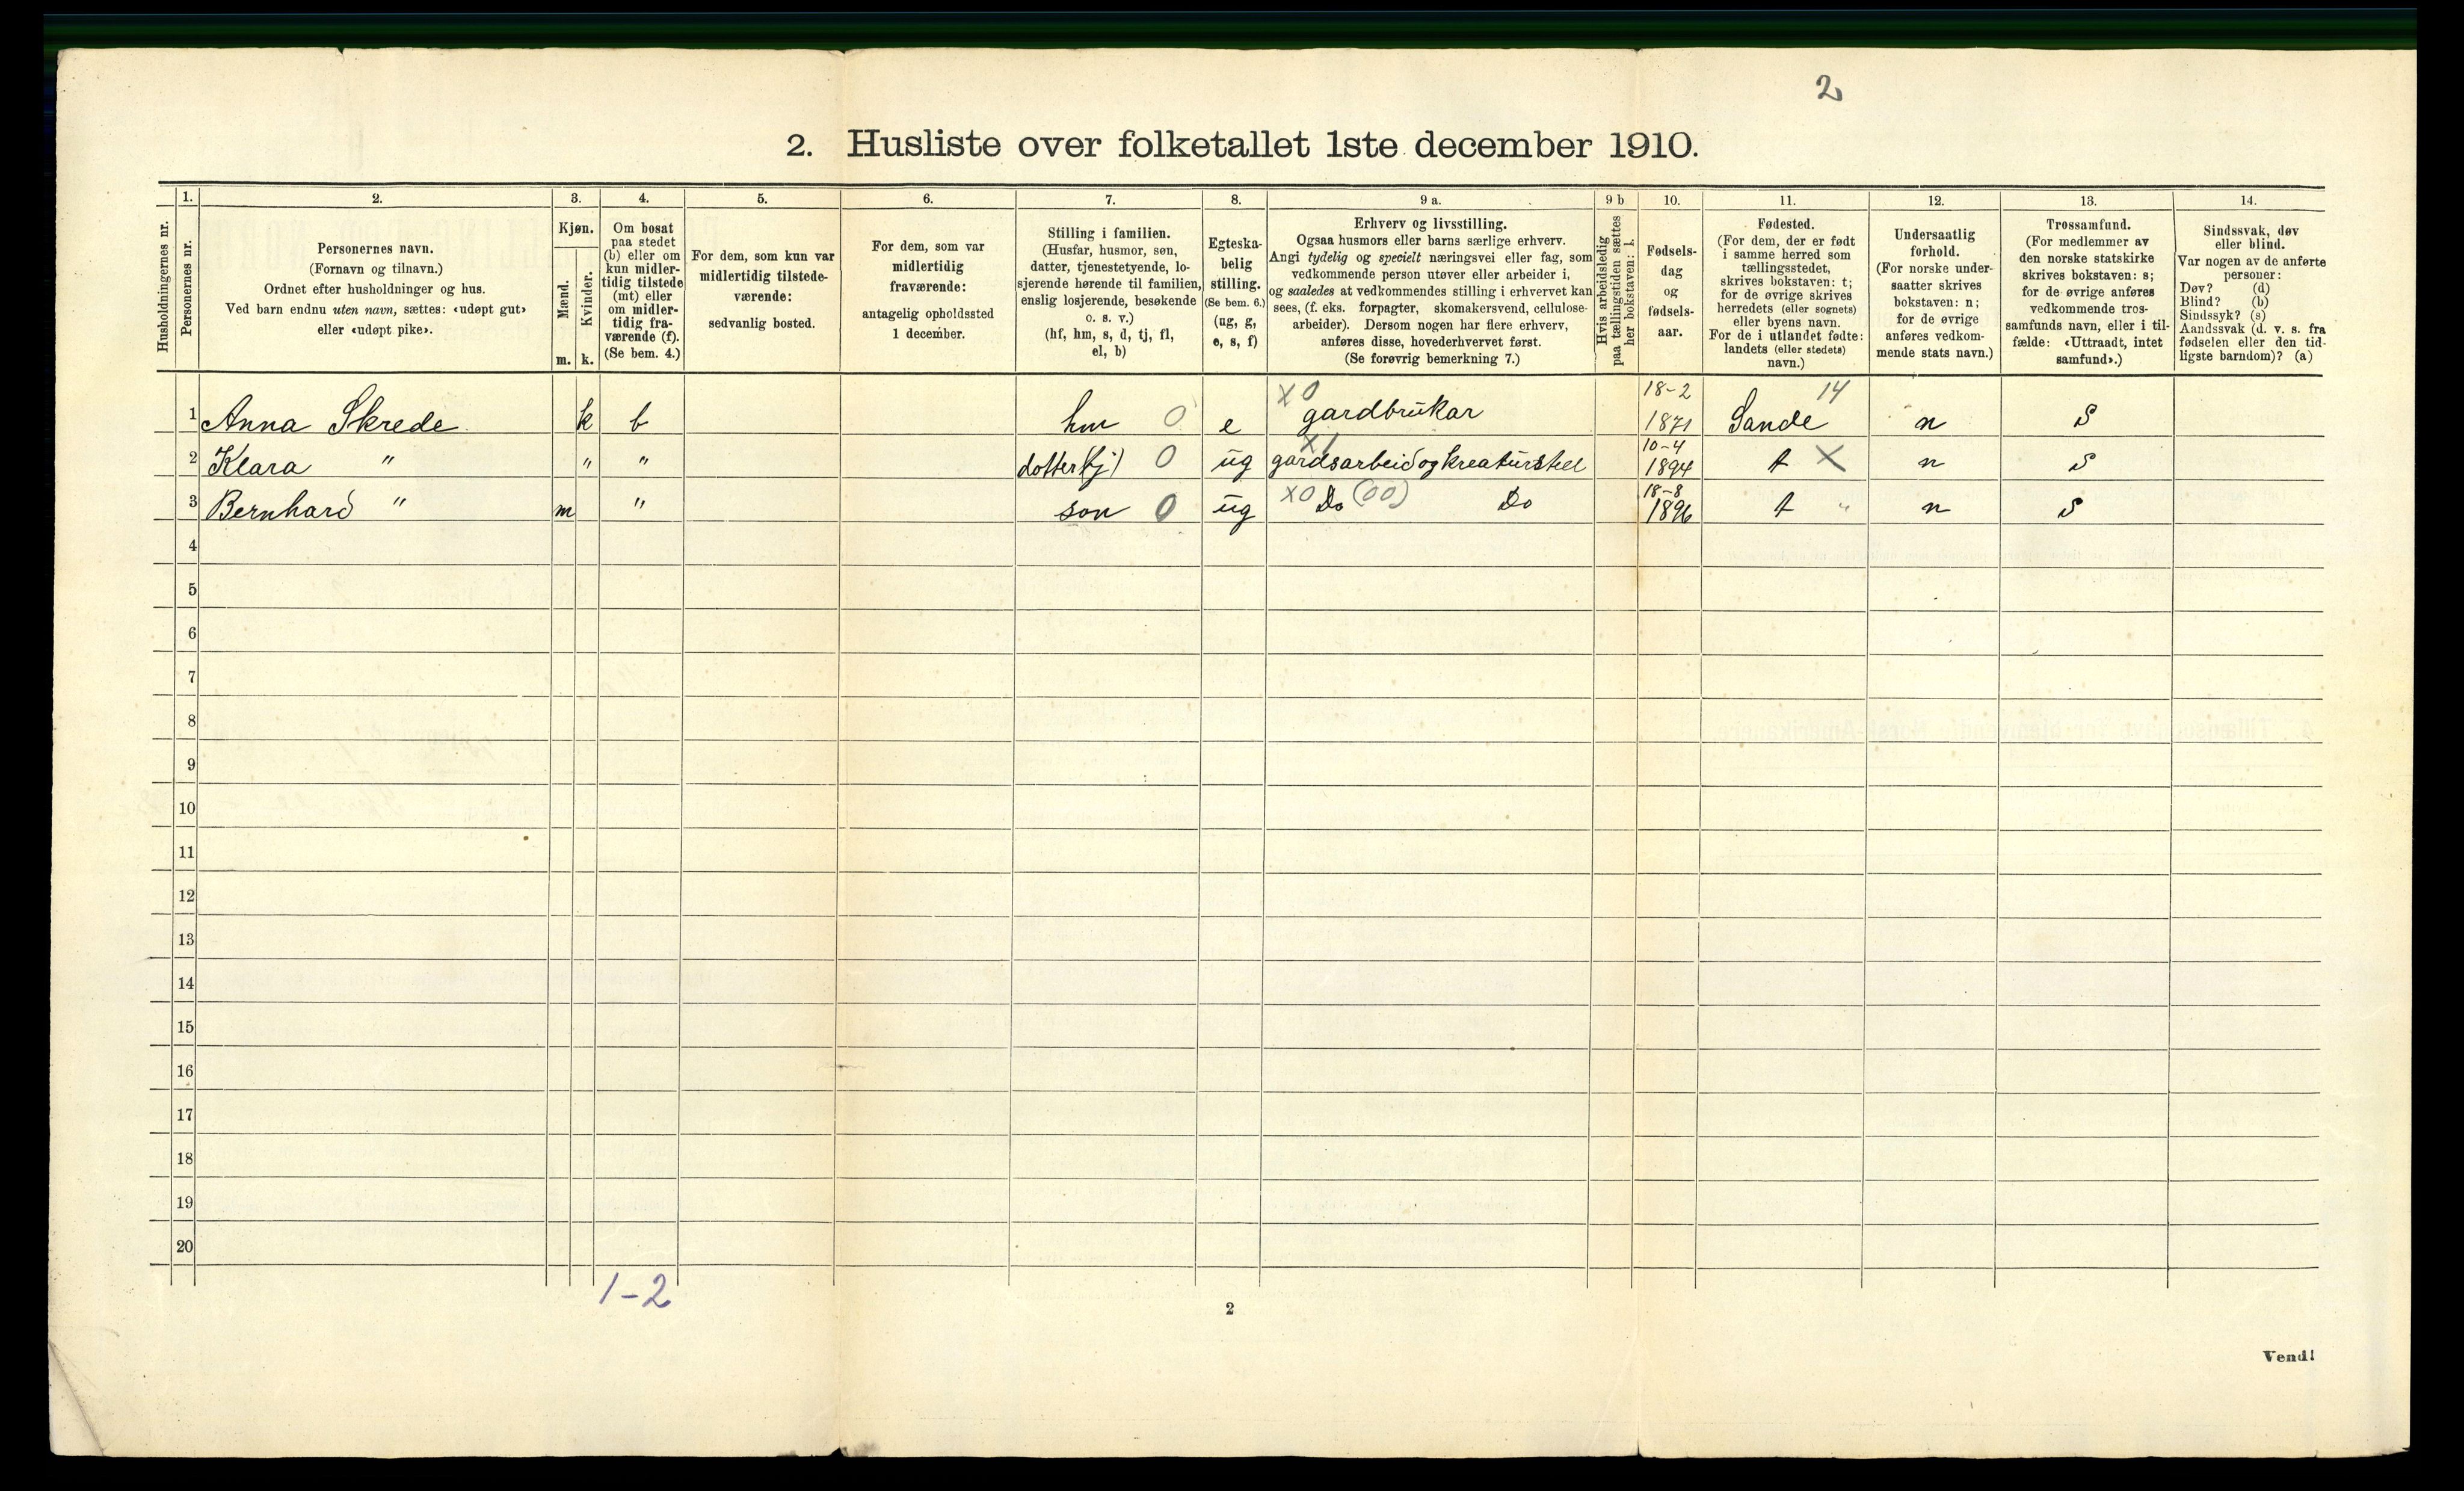 2
2. Husliste over folketallet 1ste december 1910.
Husholdningernes nr.
1.
Personernes nr.
2.
Personernes navn.
(Fornavn og tilnavn.)
Ordnet efter husholdninger og hus.
Ved barn endnu uten navn, sættes: «udøpt gut»
eller «udøpt pike».
3.
Kjøn.
Mænd.
m.
Kvinder.
k.
4.
Om bosat
paa stedet
(b) eller om
kun midler-
tidig tilstede
(mt) eller
om midler-
tidig fra-
værende (f).
(Se bem. 4.)
5.
For dem, som kun var
midlertidig tilstede-
værende:
sedvanlig bosted.
6.
For dem, som var
midlertidig
fraværende:
antagelig opholdssted
1 december.
7.
Stilling i familien.
(Husfar, husmor, søn,
datter, tjenestetyende, lo-
sjerende hørende til familien,
enslig losjerende, besøkende
o. s. v.)
(hf, hm, s, d, tj, fl,
el, b)
8.
Egteska-
belig
stilling.
(Se bem. 6.)
(ug, g,
e, s, f)
9 a.
Erhverv og livsstilling.
Ogsaa husmors eller barns særlige erhverv.
Angi tydelig og specielt næringsvei eller fag, som
vedkommende person utøver eller arbeider i,
og saaledes at vedkommendes stilling i erhvervet kan
sees, (f. eks. forpagter, skomakersvend, cellulose-
arbeider). Dersom nogen har flere erhverv,
anføres disse, hovederhvervet først.
(Se forøvrig bemerkning 7.)
9 b
Hvis arbeidsledig
paa tællingstiden sættes
her bokstaven: l.
10.
Fødsels-
dag
og
fødsels-
aar.
11.
Fødested.
(For dem, der er født
i samme herred som
tællingsstedet,
skrives bokstaven: t;
for de øvrige skrives
herredets (eller sognets)
eller byens navn.
For de i utlandet fødte:
landets (eller stedets)
navn.)
12.
Undersaatlig
forhold.
(For norske under-
saatter skrives
bokstaven: n;
for de øvrige
anføres vedkom-
mende stats navn.)
13.
Trossamfund.
(For medlemmer av
den norske statskirke
skrives bokstaven: s;
for de øvrige anføres
vedkommende tros-
samfunds navn, eller i til-
fælde: «Uttraadt, intet
samfund».)
14.
Sindssvak, døv
eller blind.
Var nogen av de anførte
personer:
Døv? (d)
Blind? (b)
Sindssyk? (s)
Aandssvak (d. v. s. fra
fødselen eller den tid-
ligste barndom)? (a)
1 Anna Skrede k b hm 0 e X0 gardbrukar 18-2 1871 Sande 14 n S
2 Klara " " " dotter (tj) 0 ug X1 gardsarbeid og kreaturstell 10-4 1894 t X n S
3 Bernhard " m " son 0 ug X0 Do (00) Do 18-8 1896 t " n S
4
5
6
7
8
9
10
11
12
13
14
15
16
17
18
19
20
1-2
2
Vend!